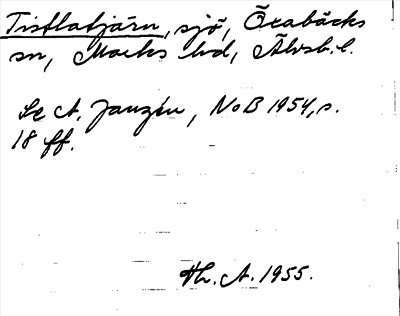 Tistlatjärn, sjö, Öxabäcks
sn, Marks hd, Älvsb. l.
Se A. Janzén, NoB 1954, s.
18 ff.
Hh. A. 1955.